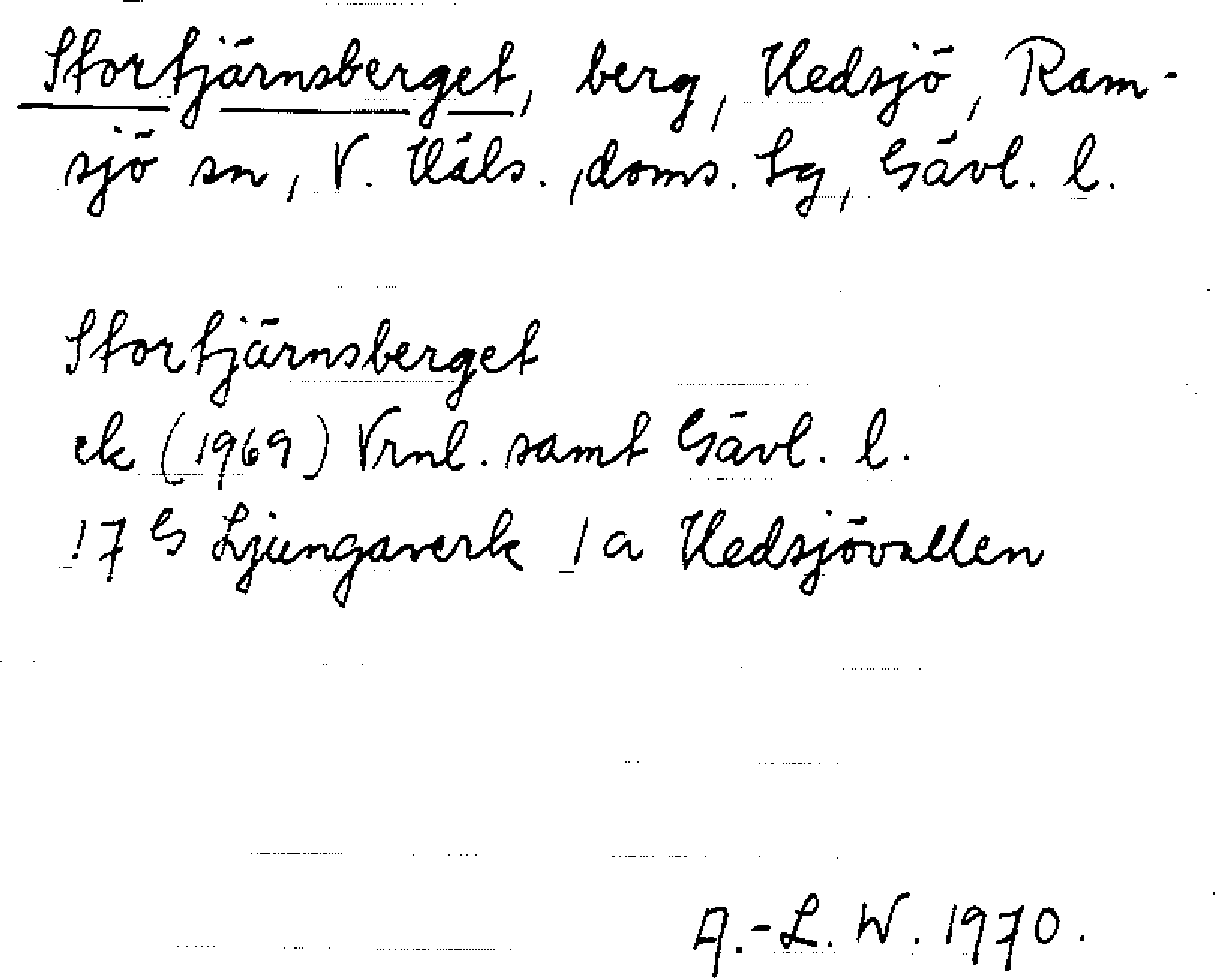 Stortjärnsberget, berg, Hedsjö, Ram-
sjö sn, V. Häls. doms. lg, Gävl. l.
Stortjärnsberget
ek (1969) Vrnl. samt Gävl. l.
17 G Ljungaverk 1a Hedsjövallen
A.-L. W. 1970.